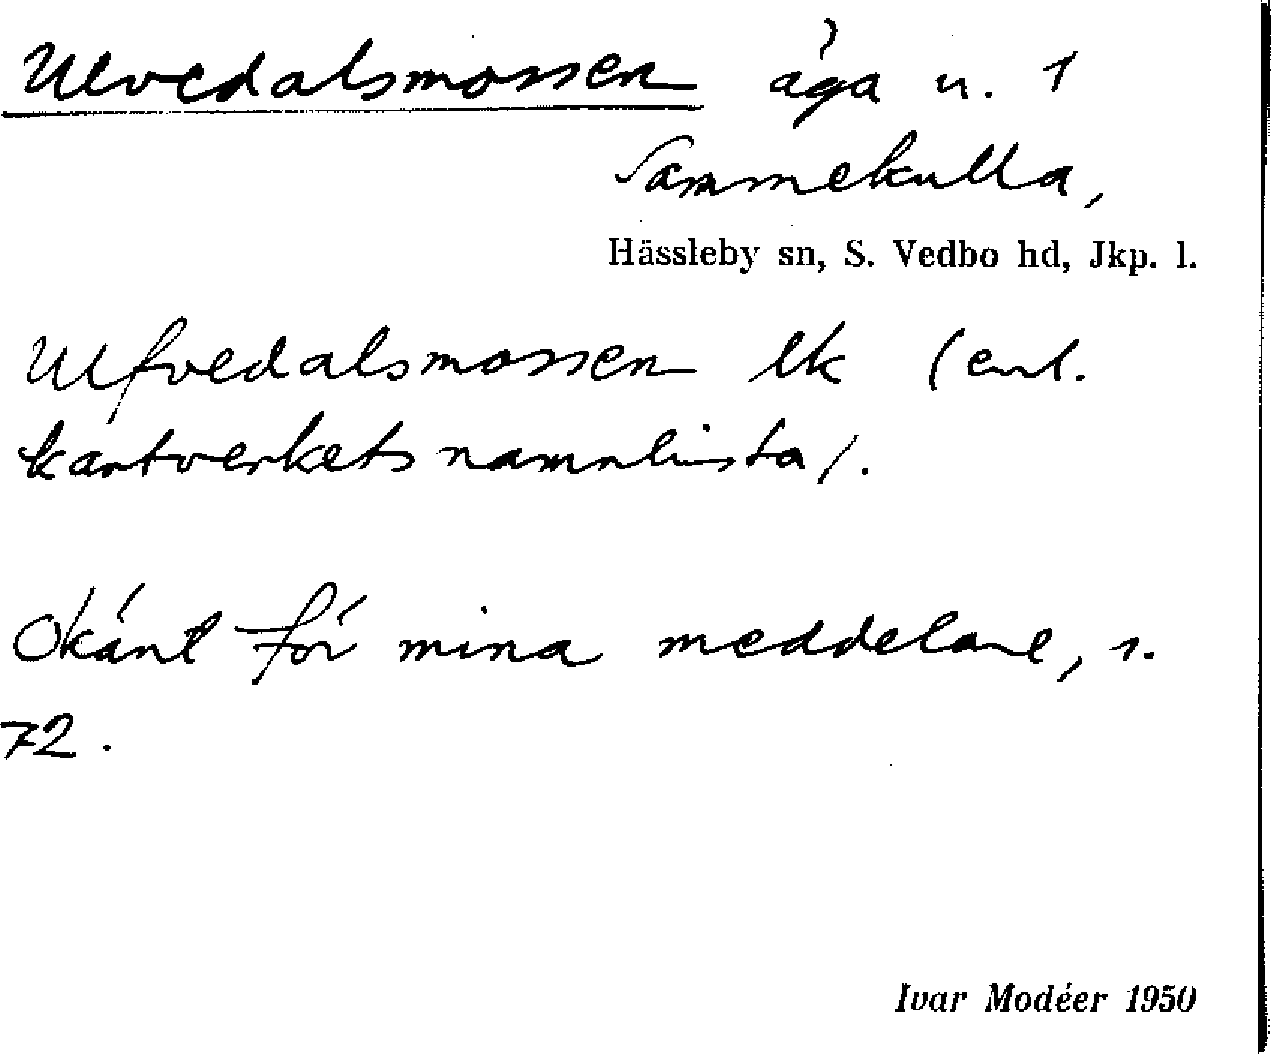 Ulvedalsmossen äga u. 1
Sammekulla,
Hässleby sn, S. Vedbo hd, Jkp. l.
Ulfvedalsmossen lk (enl.
kartverkets namnlista).
Okänt för mina meddelare, s.
72.
Ivar Modéer 1950